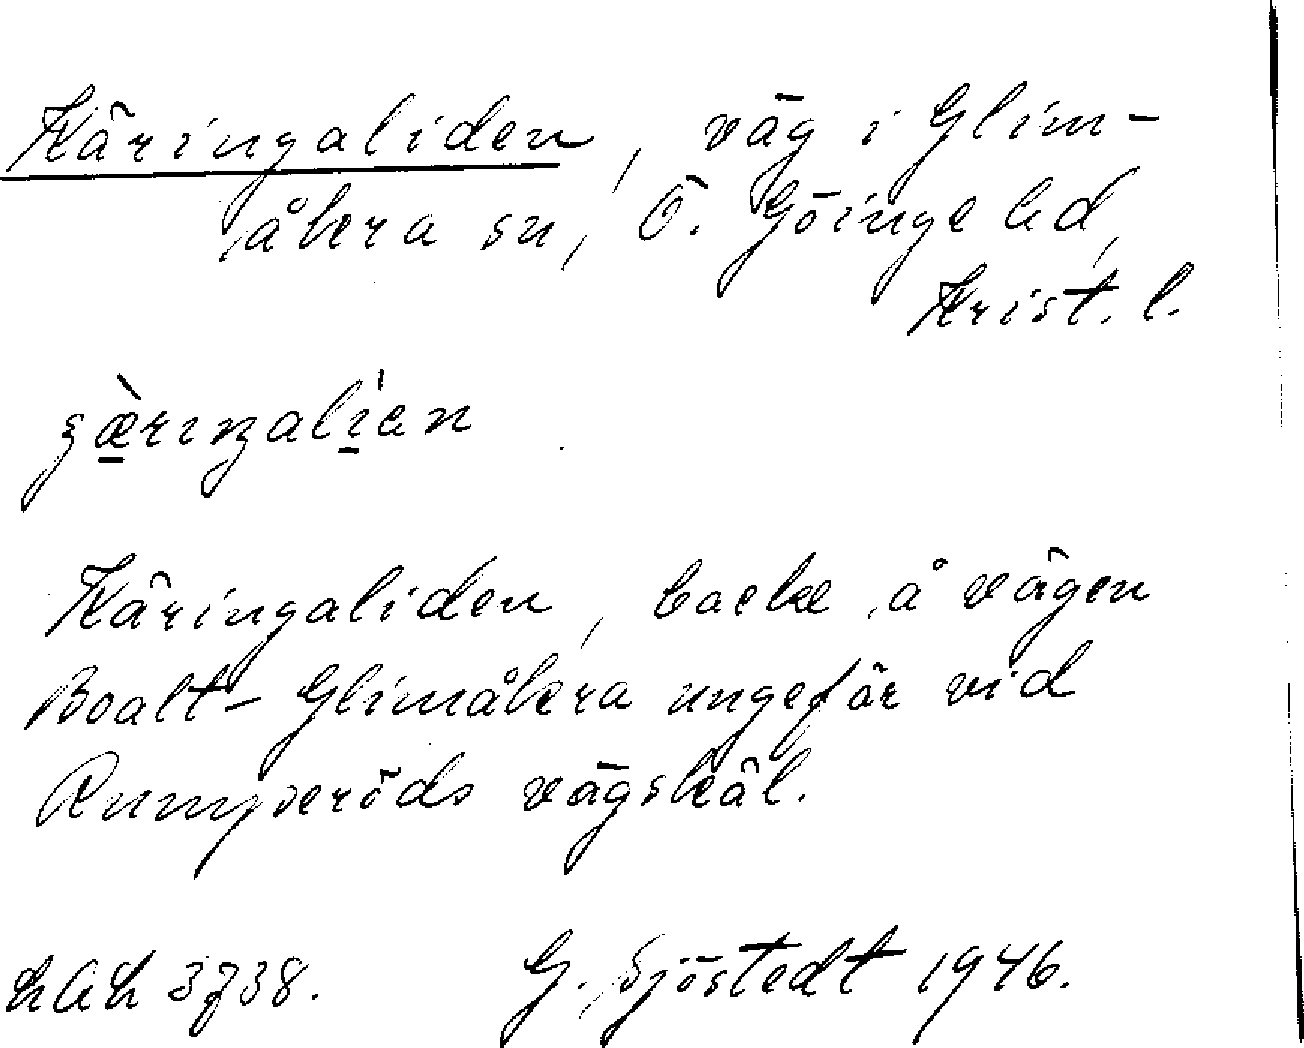 Käringaliden, väg i Glim-
åkra sn, Ö. Göinge hd,
Krist. l.
Käringaliden, backe å vägen
Boalt- Glimåkra ungefär vid
Rumperöds vägskäl.
3738. G. Sjöstedt 1946.